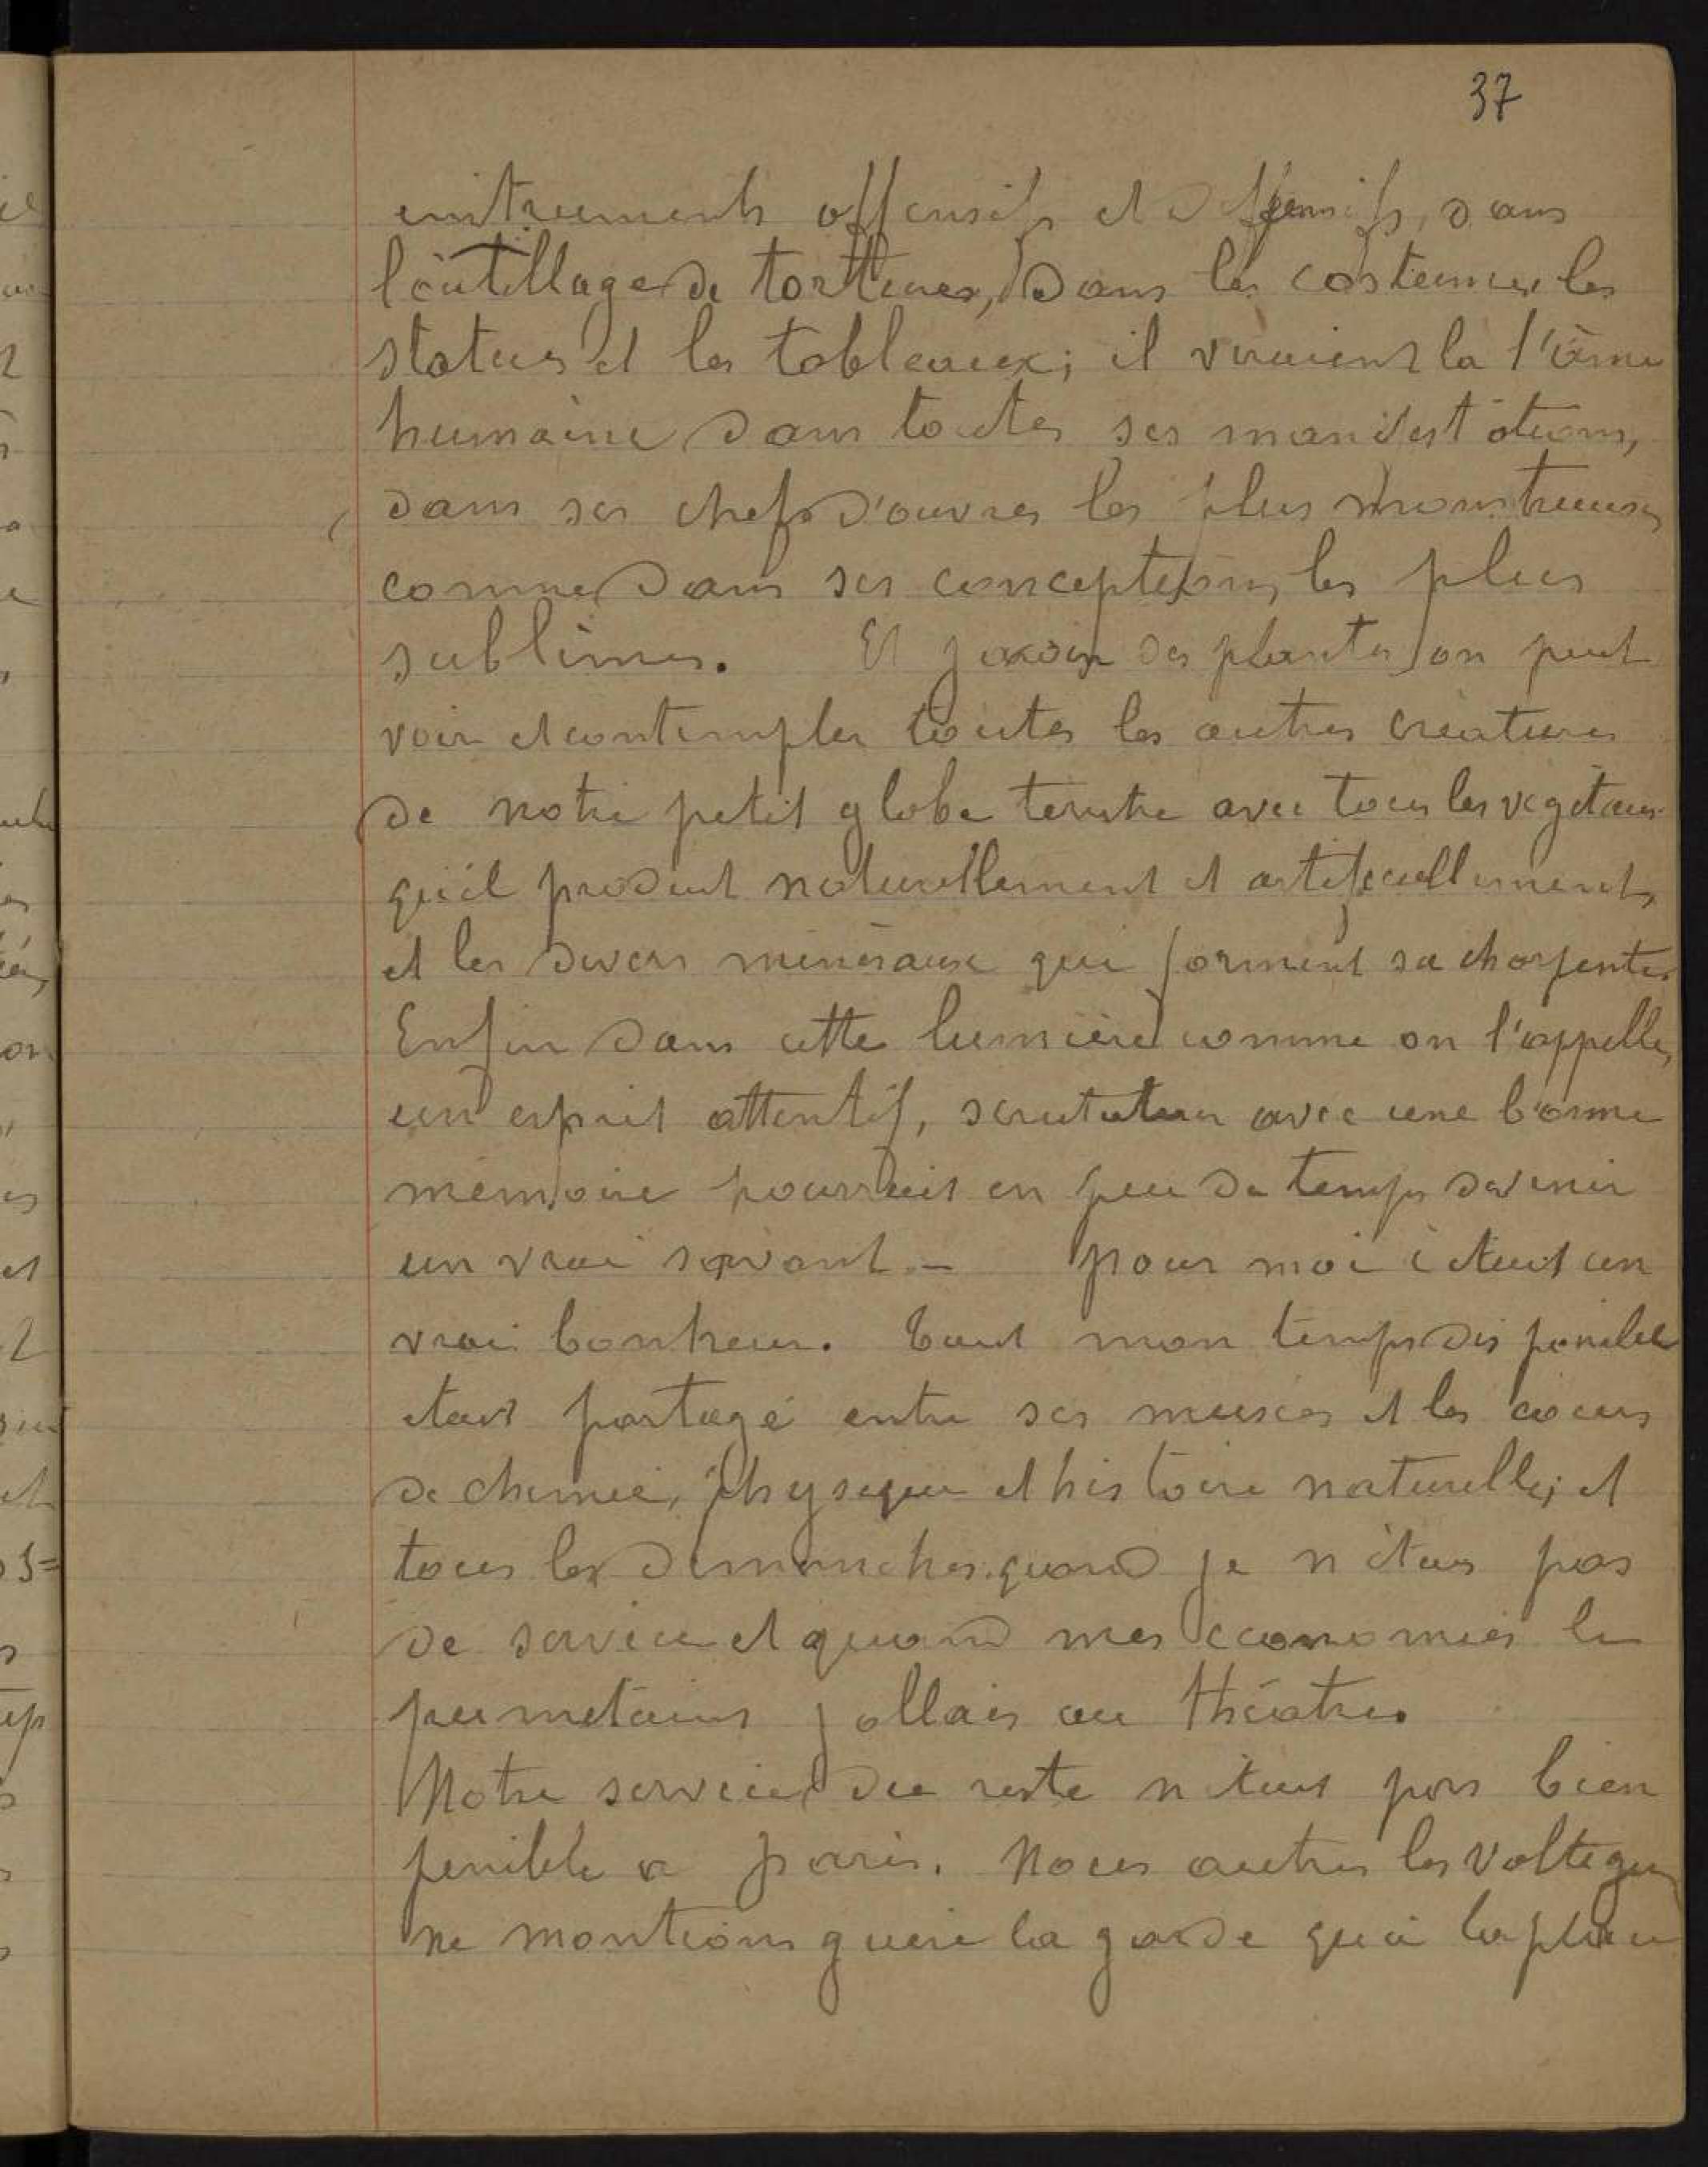 37
instruments offensifs et deffensifs, dans
l'outillage de tortures, dans les costumes les
status et les tableaux; il voiraient la l'âme
humaine dans toutes ses manifestations,
dans ses chefs d'ouvres les plus monstrueuses
comme dans ses conceptions les plus
sublimes. Et jardin des plantes on peut
voir et contempler toutes les autres creatures
de notre petit globe terrestre avec tous les vegetaux
qu'il produit naturellement et artificiellement,
et les divers minéraux qui forment sa charpente.
Enfin dans cette lumière comme on l'appelle,
un esprit attentif, scrutateur avec une bonne
memoire pourrait en peu de temps devenir
un vrai savant – pour moi c etait un
vrai bonheur. Tout mon temps disponible
etait partagé entre ses musées et les cours
de chimie, physique et histoire naturelle; et
tous les dimanches quand je n étais pas
de service et quand mes économies le
permetaient j allais au théatre.
Notre service du reste n etait pas bien
penible a paris. Nous autres les voltigeurs
ne montions guère la garde qu'a la place